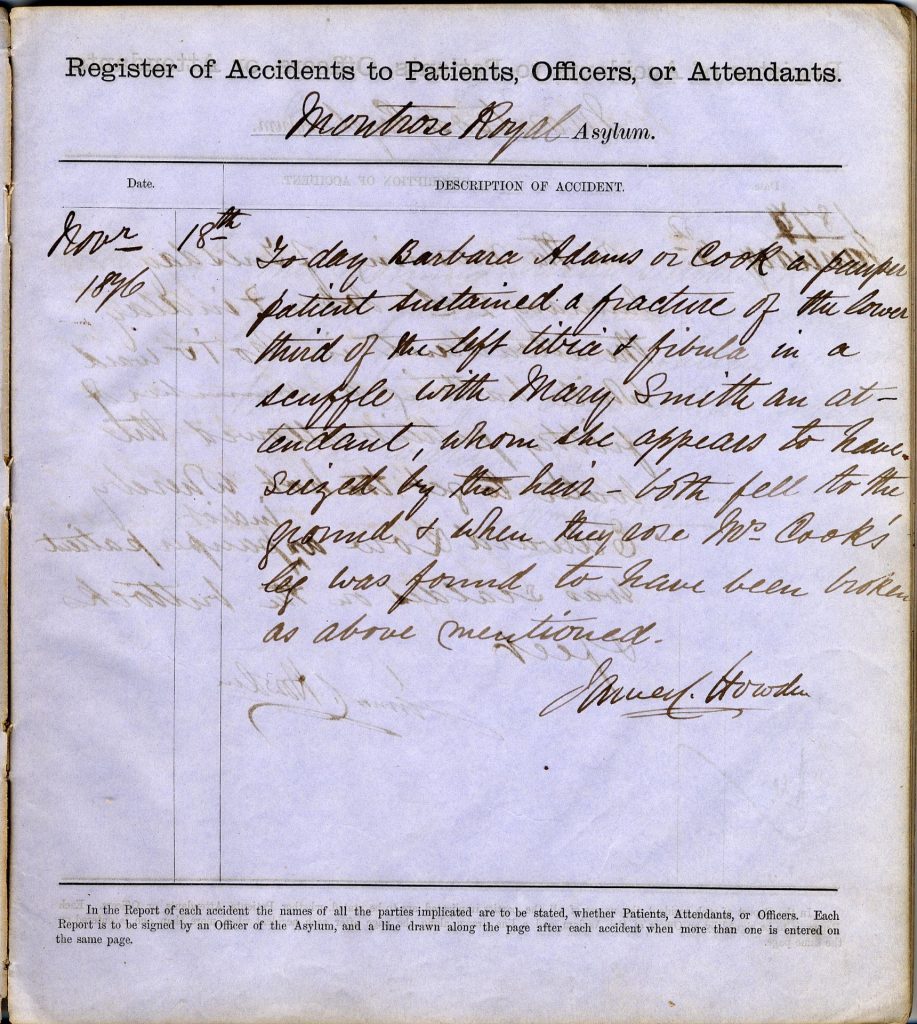 Register of Accidents to Patients, Officers, or Attendants.
Montrose Royal Asylum.
Date.
DESCRIPTION OF ACCIDENT.
Novr 18th
1876
To day Barbara Adams or Cook a pauper
patient sustained a fracture of the lower
third of the left tibia & fibula in a
scuffle with Mary Smith an at-
tendant, whom she appears to have
seized by the hair - both fell to the
ground & when they rose Mrs Cook's
leg was found to have been broken
as above mentioned.
James C. Howden
In the Report of each accident the names of all the parties implicated are to be stated, whether Patients, Attendants, or Officers. Each
Report is to be signed by an Officer of the Asylum, and a line drawn along the page after each accident when more than one is entered on
the same page.